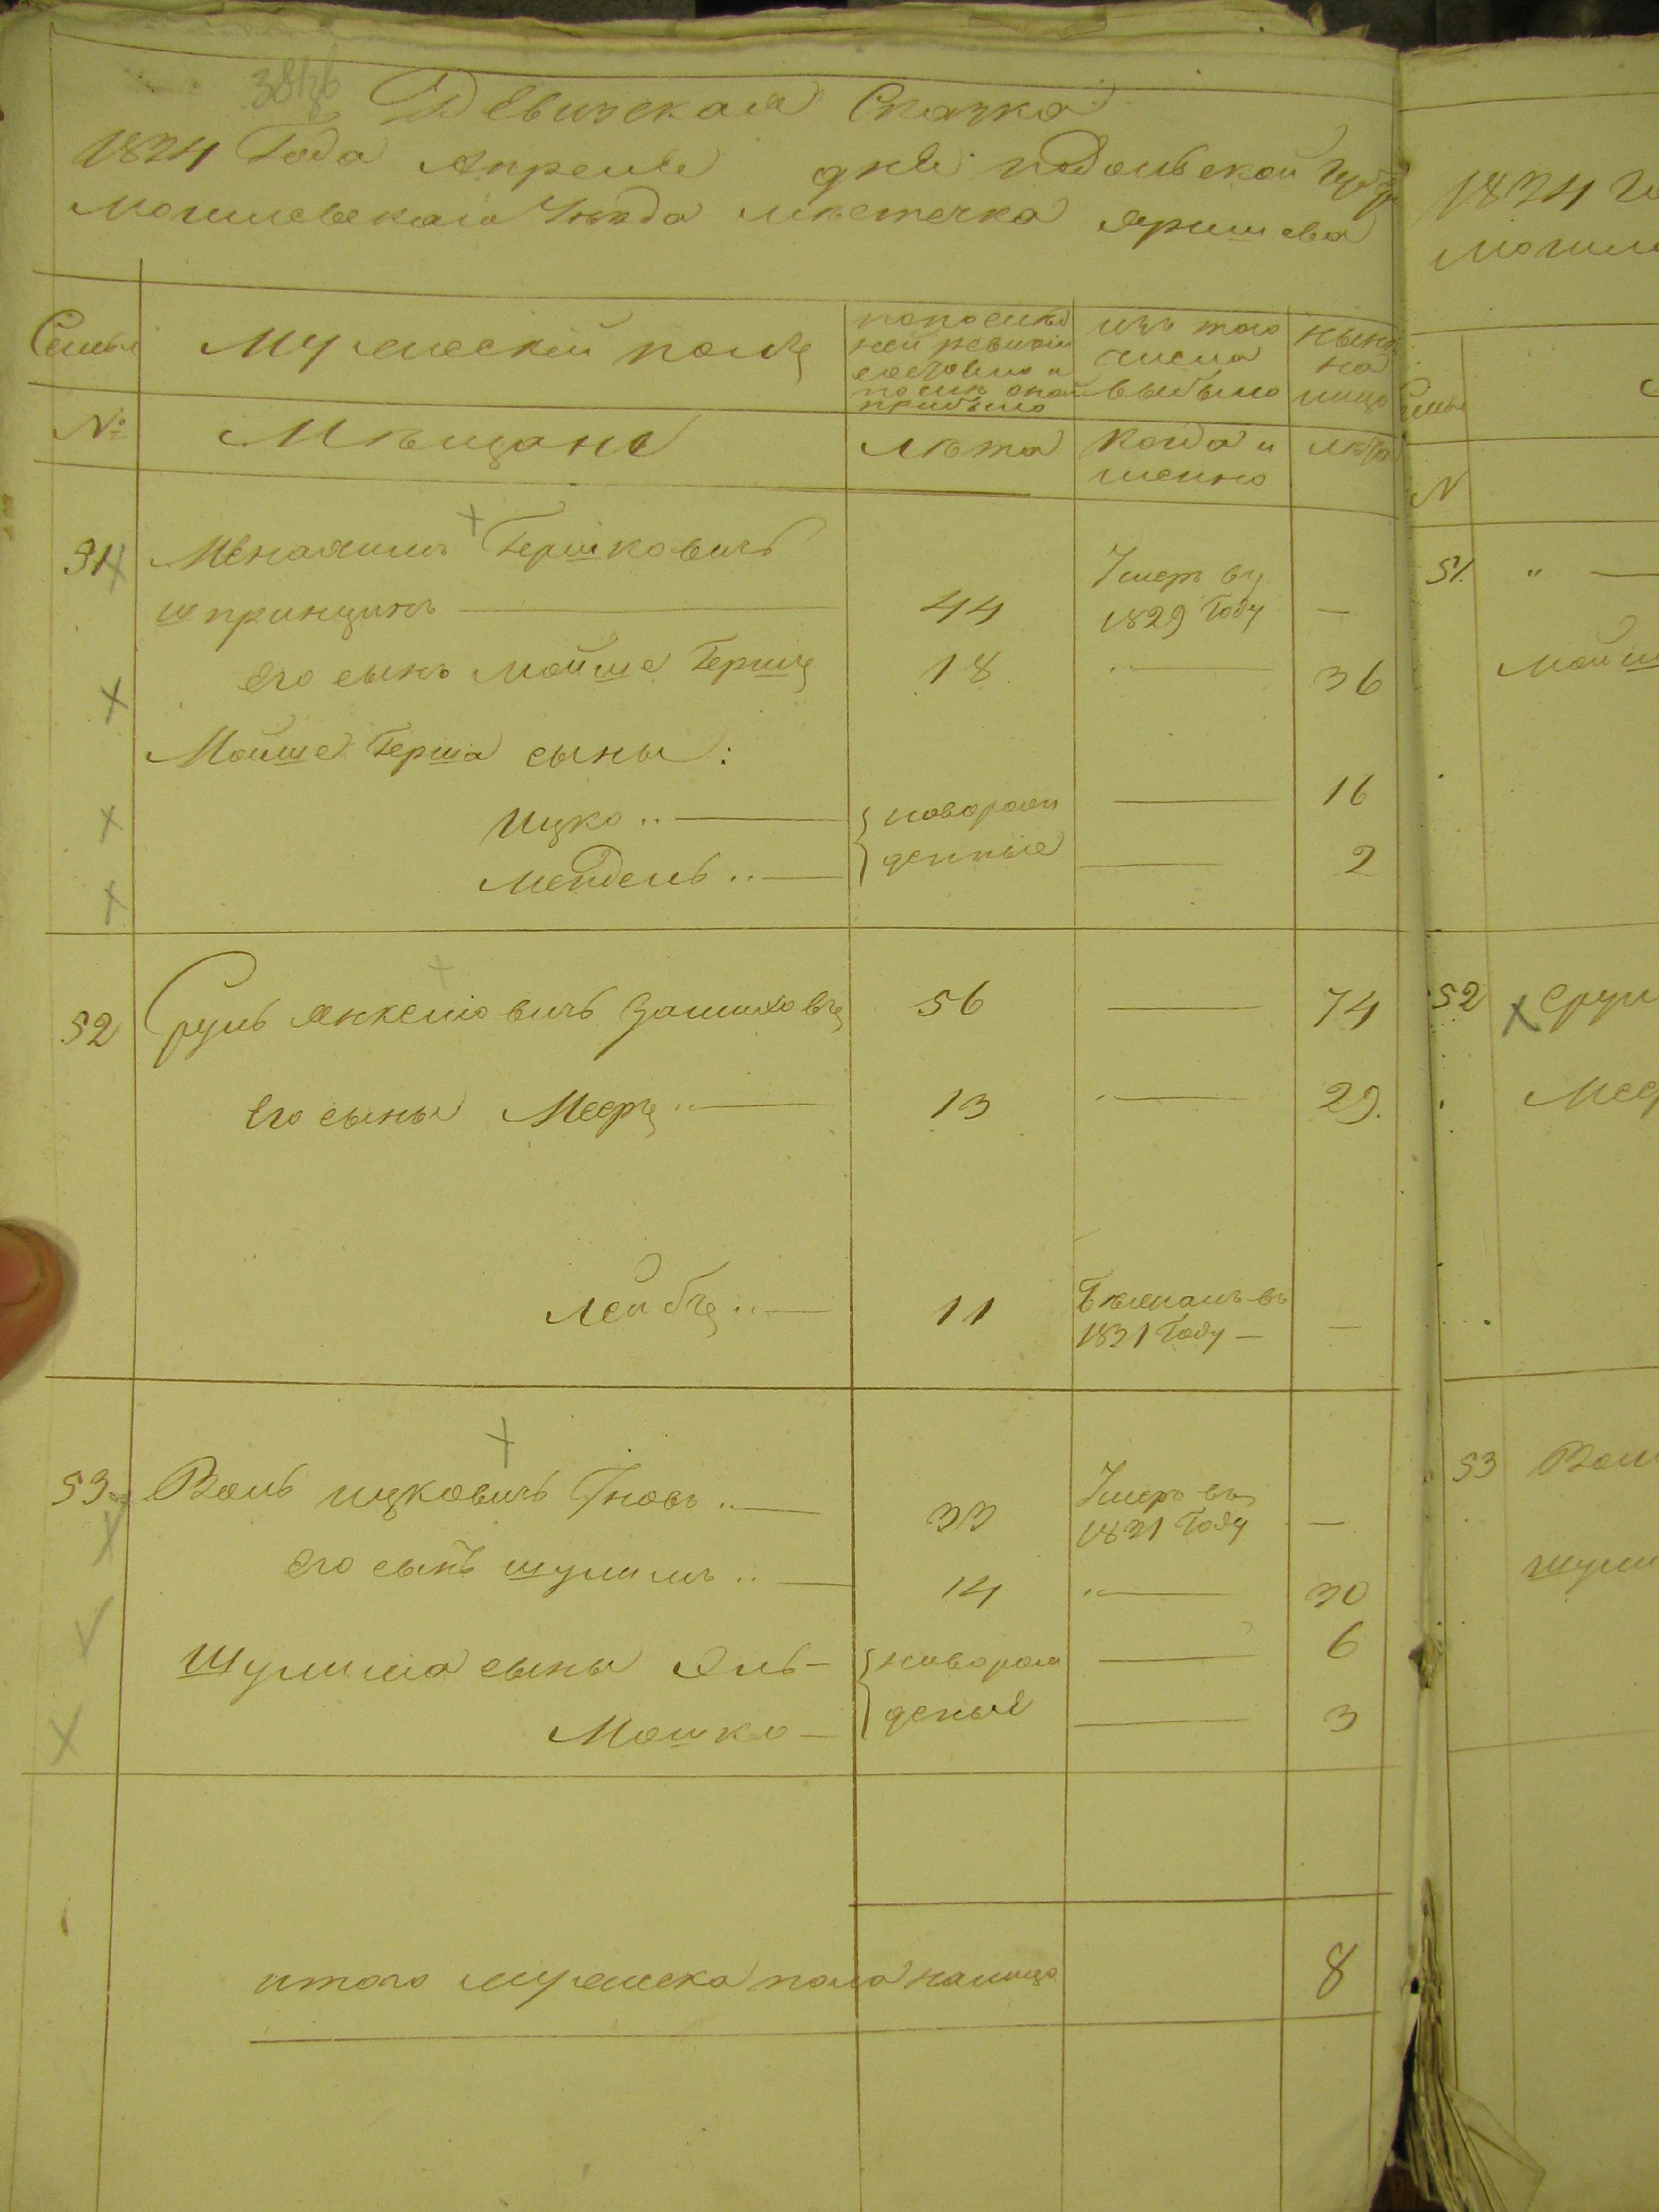 Ревизская Сказка
1834 Года Апреля дня подольской Губер
Могилевскаго Уезда местечка Яришева
Семьи
Мужеский полъ
по последней ревизии состояло и после оной прибыло
изъ того числа выбыло
ныне на лицо
№
Мещане
лета
когда именно
лета
51 Менахимъ Гершковичъ
Шпринцинъ 44 Умеръ въ 1829 Году —
его сынъ Мойше Гершъ 18 — 36
Мойше Герша сыны:
Ицко .. новорож — 16
Мендель .. денные — 2
52 Сруль Янкелювичъ 56 — 74
Его сыны Мееръ 13 — 29.
Лейбъ .. 11 Бежалъ въ 1831 Году —
53 Воль ицковичъ .. 33 Умеръ въ 1831 Году —
его сынъ шулимъ .. 14 — 30
Шулима сыны Эль — новорож — 6
Мошко — деные — 3
итого мужеска пола налицо 8
1834 Го
Могиле
Семьи
N
51. " —
Мойш
52 Срул
Меер
53 Воль
шули